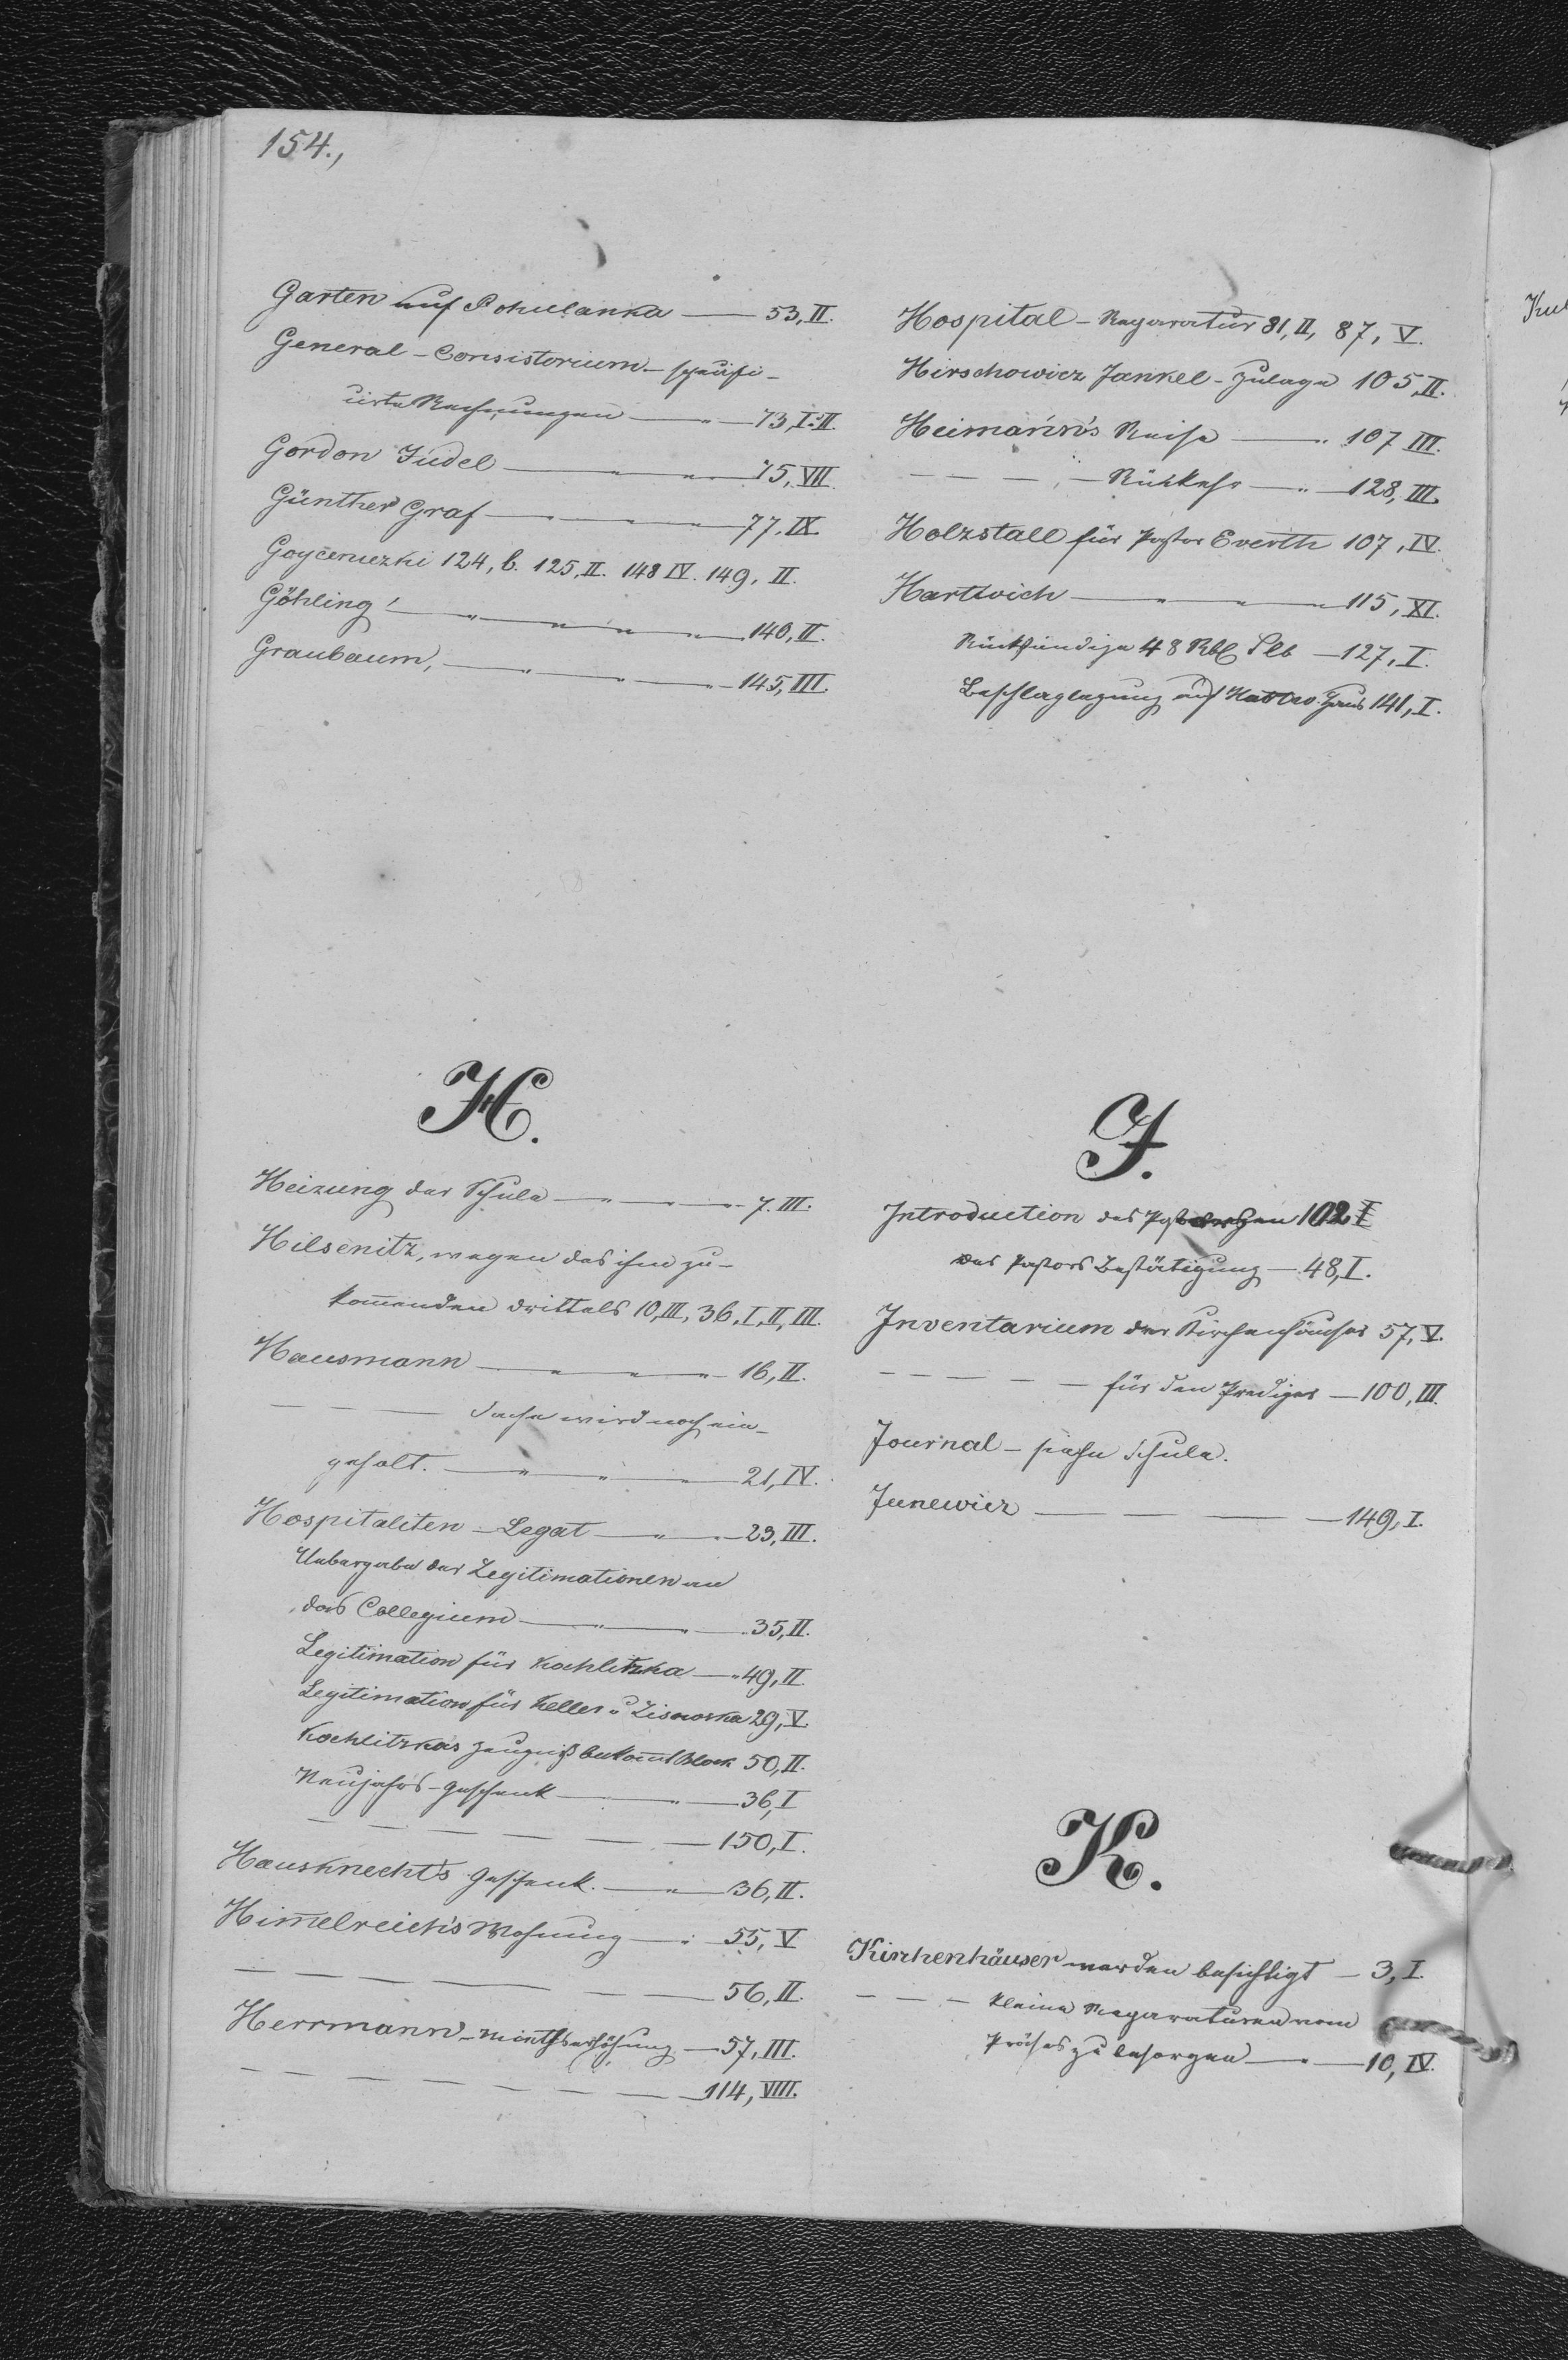 154.,
Garten auf Pohulanka — 53, II.
General-Consistorium - specifi-
cirte Rechnungen — " — 73, I. II.
Gordon Judel — " — " — 75, VII.
Günther Graf — " — " — 77. IX.
Goycenuzki 124, b. 125, II. 148 IV. 149, II.
Göhling — " — " — " — " — 140, II.
Graubaum, — " — " — " — 145, III.
H.
Heizung der Schule — " — " — 7. III.
Hilsenitz, wegen des ihm zu-
kom̄enden Drittels 10, III, 36, I, II, III.
Hausmann — " — " — " — 16, II.
— — — Sache wird noch ein-
geholt. — " — " — " — 21, IV.
Hospitaliten-Legat — " — " — 23, III.
Uebergabe der Legitimationen an
das Collegium — " — " — 35, II.
Legitimation für Kochlitzka — " 49, II.
Legitimation für Keller u. Lisowska 29, V.
Kochlitzkas Zeugniß bekom̄t Block 50, II.
Neujahrs-Geschenk — " — 36, I
— — — — — — 150, I.
Hausknecht's Geschenk. — " — 36, II.
Him̄elreich's Wohnung — " 55, V
— — — — — — — 56, II.
Herrmann - Miethserhöhung — 57, III.
— — — — — — — — 114, VIII.
Hospital-Reparatur 81, II, 87, V.
Hirschowicz Jankel-Zulage 105, II.
Heimann's Reise — " 107 III.
— — — " — Rückkehr — " — 128, III.
Holzstall für Pastor Everth 107, IV.
Hartwich — " — " — " — 115, XI.
Rückständige 48 Rbl Slb — 127, I.
Beschlaglegung auf Hartw. Haus 141, I.
J.
Introduction des 102 I
des Pastors Bestätigung — 48, I.
Inventarium der Kirchenhäuser 57, V.
— — — — — für den Prediger — 100, III.
Journal - siehe Schule.
Junewicz — — — — 149, I.
K.
Kirchenhäuser werden besichtigt — 3, I.
— — — kleine Reparaturen vom
Präses zu besorgen — " — 10, IV.